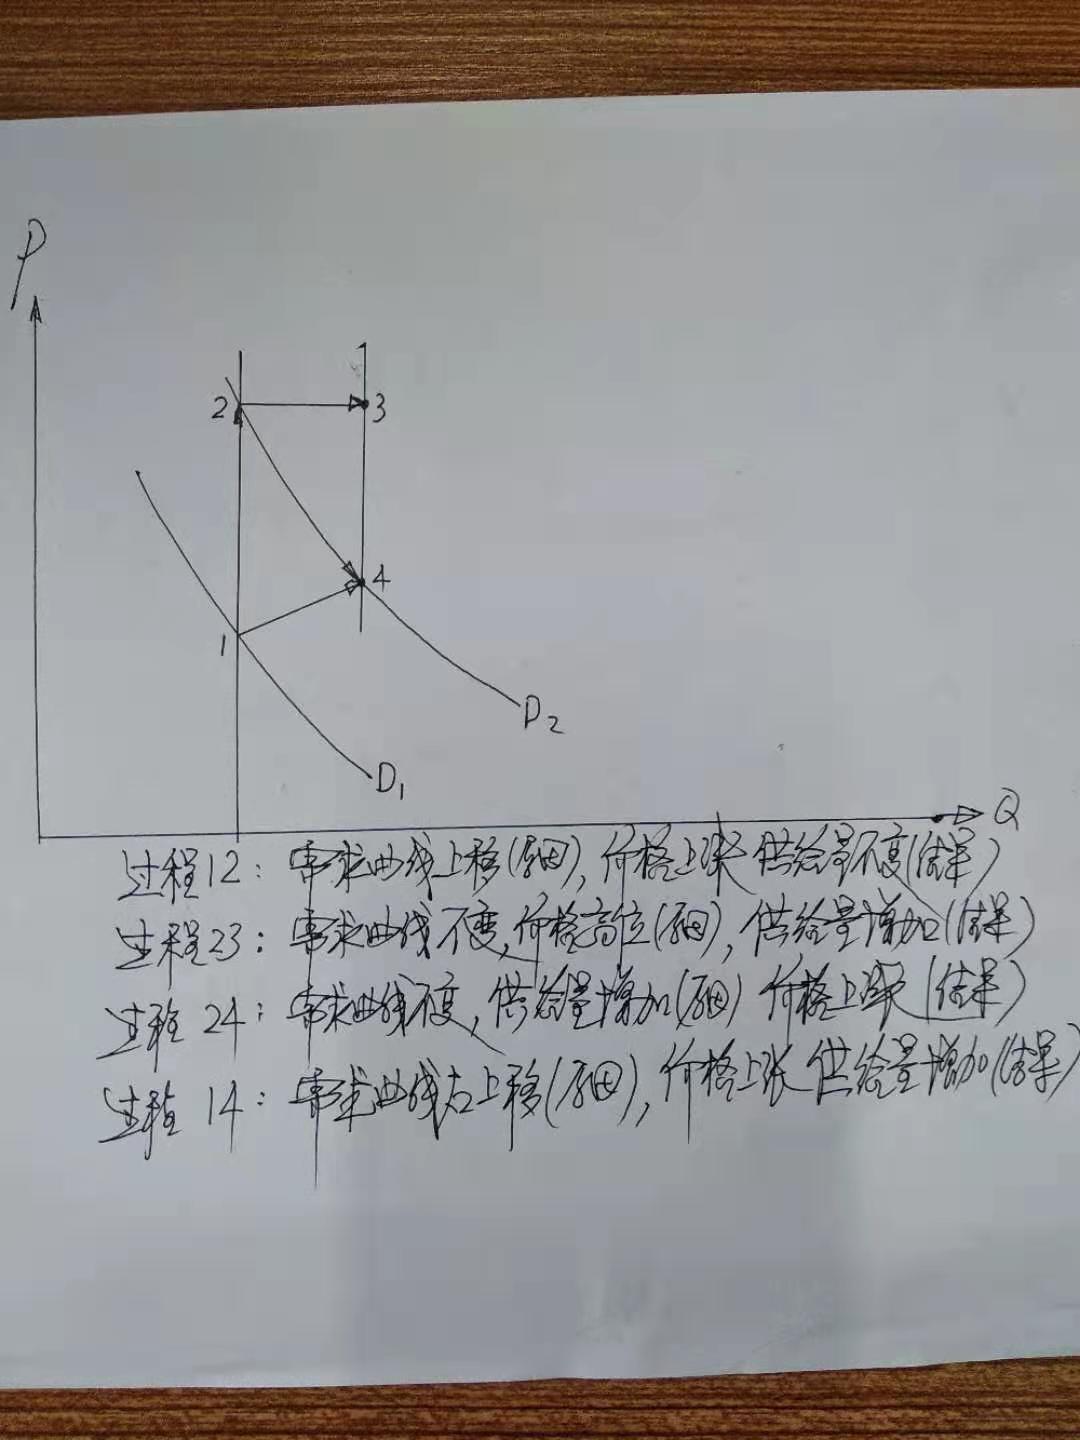 P
2
3
4
1
D2
D1
Q
过程12：需求曲线上移(原因)，价格上涨 供给量不变(结果)
过程23：需求曲线不变，价格高位(原因)，供给量增加(结果)
过程24：需求曲线不变，供给量增加(原因) 价格上涨(结果)
过程14：需求曲线右上移(原因)，价格上涨 供给量增加(结果)